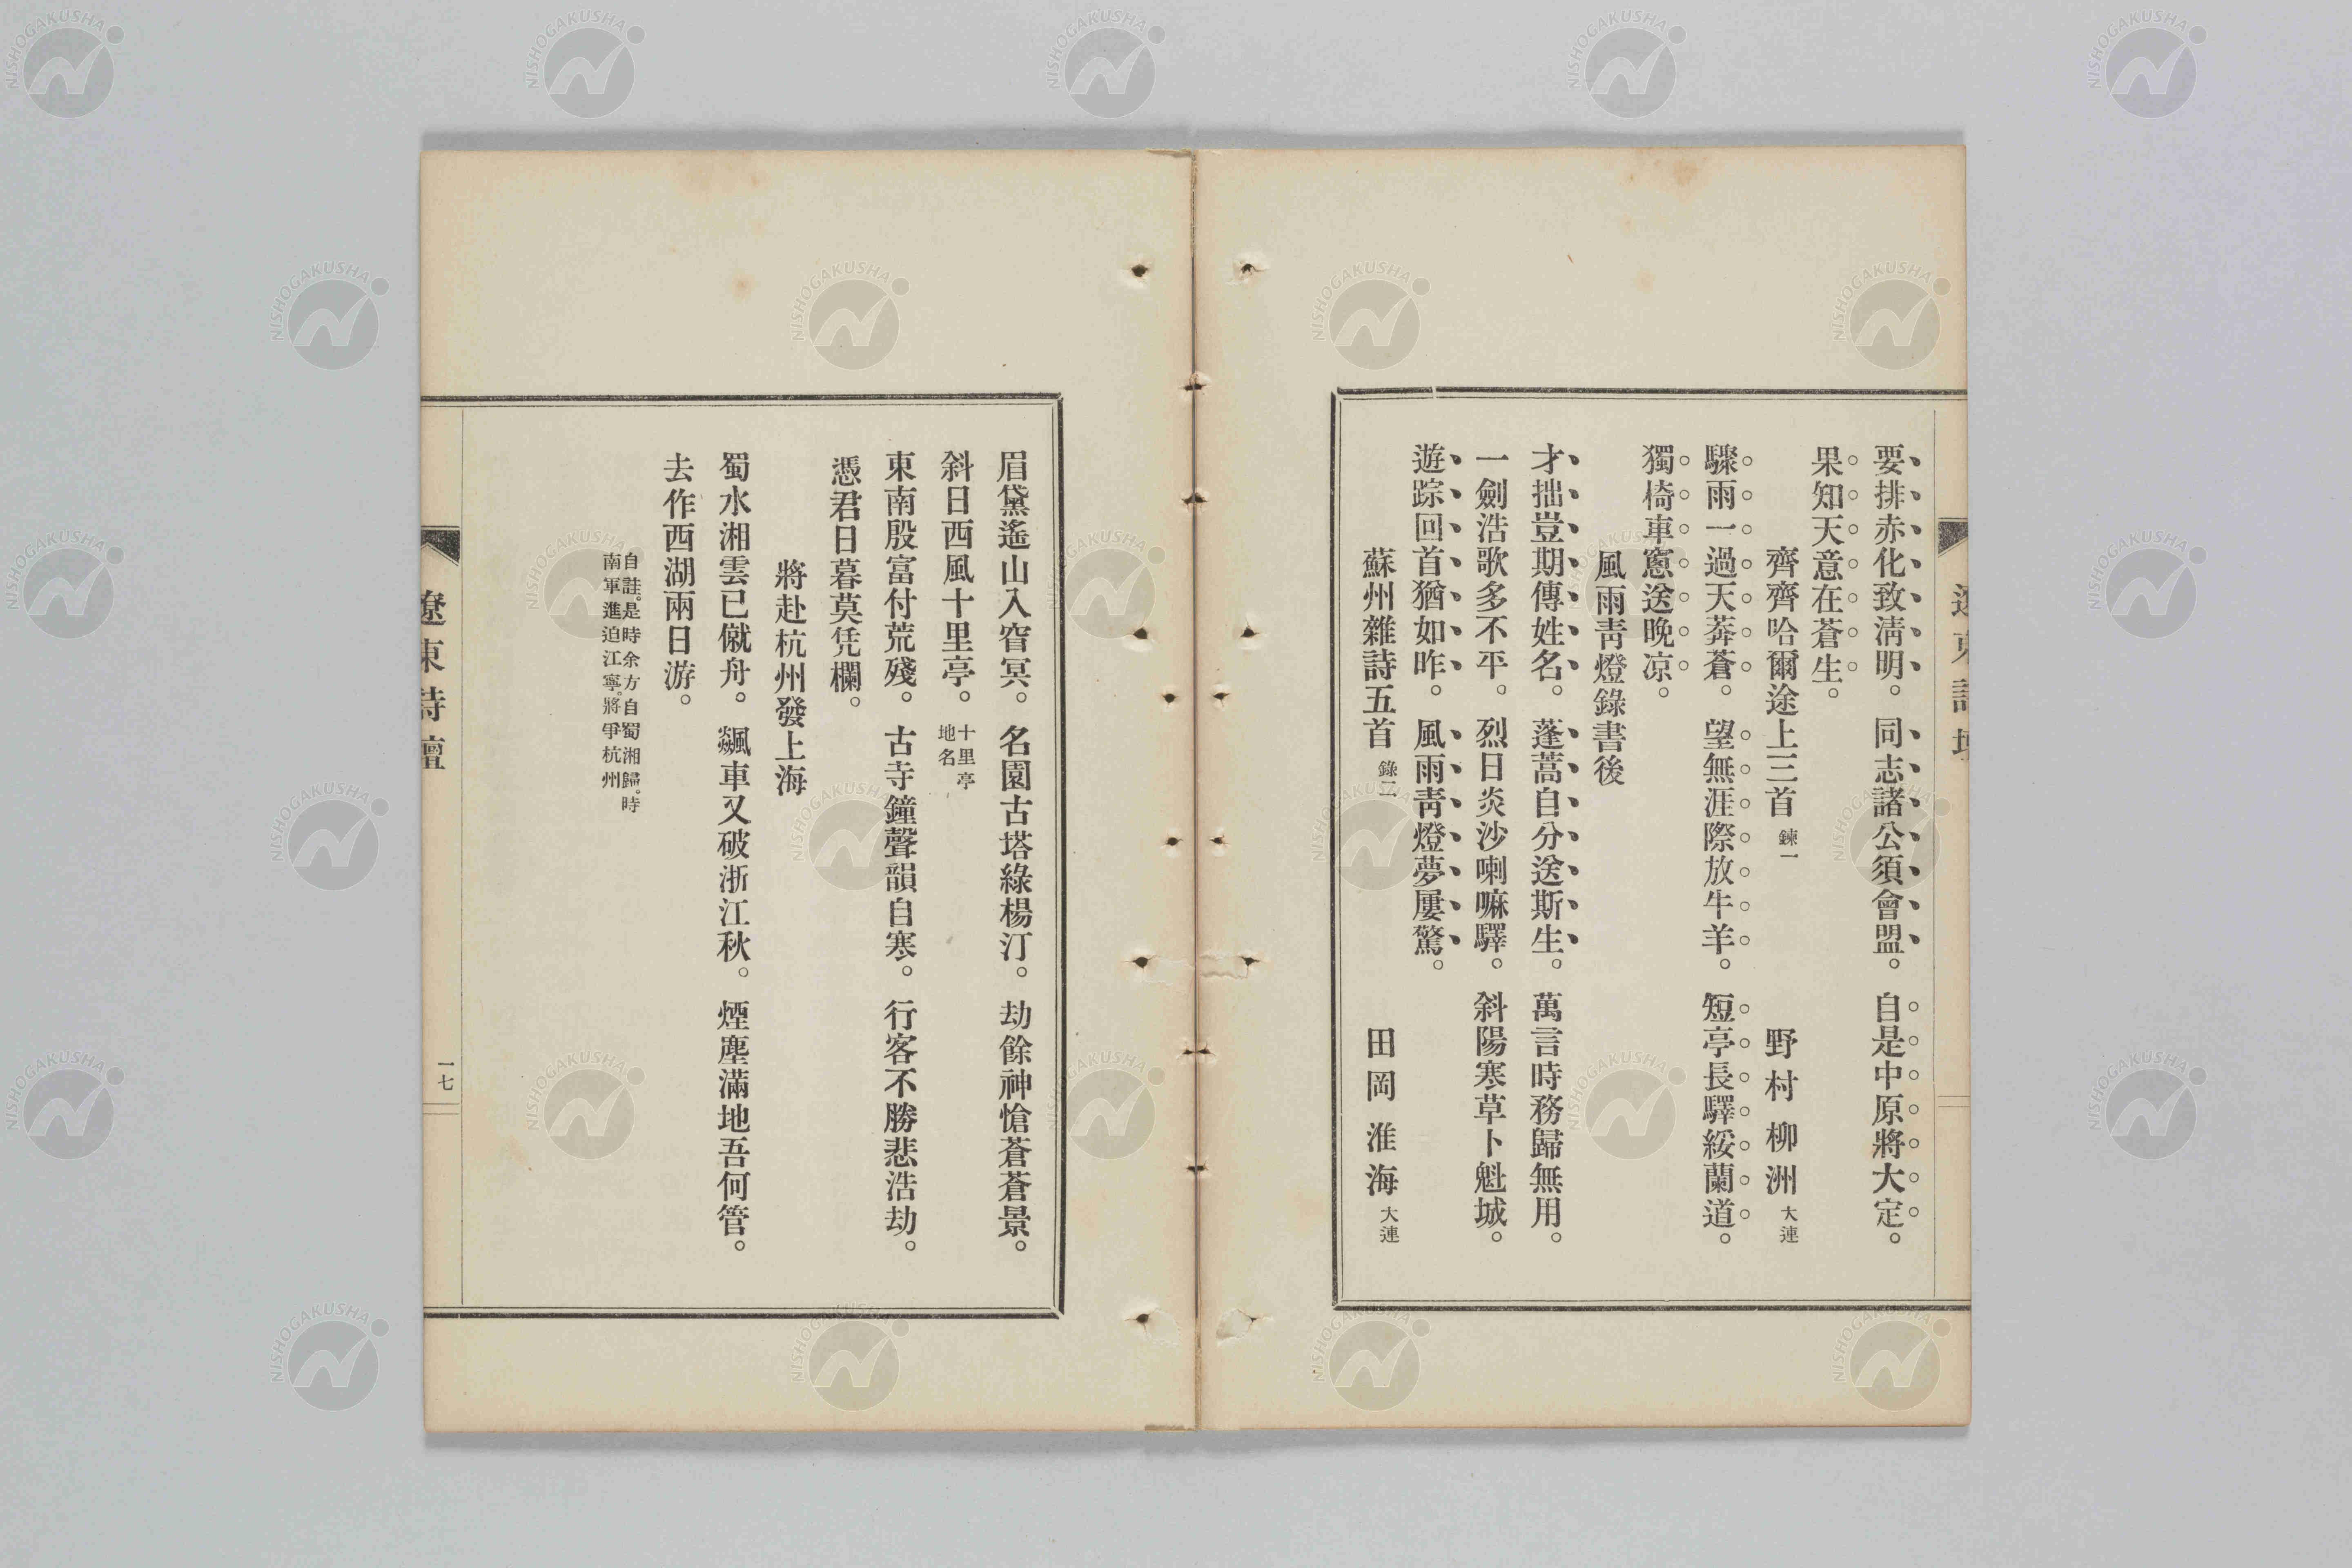 要排赤化致淸明。同志諸公須會盟。自是中原將大定。
果知天意在蒼生。
齊齊哈爾途上三首 鍊一 野村柳洲 大連
驟雨一過天莽蒼。望無涯際放牛羊。短亭長驛綏蘭道。
獨椅車窻送晚凉。
風雨靑燈錄書後
才拙豈期傳姓名。蓬蒿自分送斯生。萬言時務歸無用。
一劍浩歌多不平。烈日炎沙喇嘛驛。斜陽寒草卜魁城。
遊踪回首猶如昨。風雨靑燈夢屢驚。
蘇州雜詩五首 錄二 田岡淮海 大連
眉黛遙山入窅冥。名園古塔綠楊汀。劫餘神愴蒼蒼景。
斜日西風十里亭。十里亭地名
東南殷富付荒殘。古寺鐘聲韻自寒。行客不勝悲浩劫。
憑君日暮莫凭欄。
將赴杭州發上海
蜀水湘雲已僦舟。飆車又破浙江秋。煙塵滿地吾何管。
去作西湖兩日游。
自註。是時余方自蜀湘歸。時
南軍進迫江寧。將爭杭州
遼東詩壇
一七
NISHOGAKUSHA